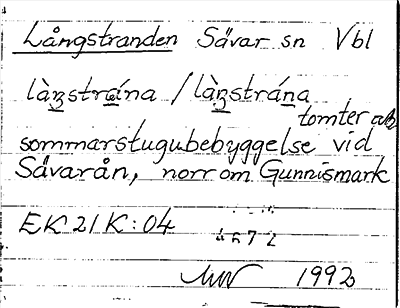 Långstranden Sävar sn Vbl
làŋstráina / làŋstrána
tomter
sommarstugubebyggelse vid
Sävarån, norr om Gunnismark
EK 21 K:04
1992